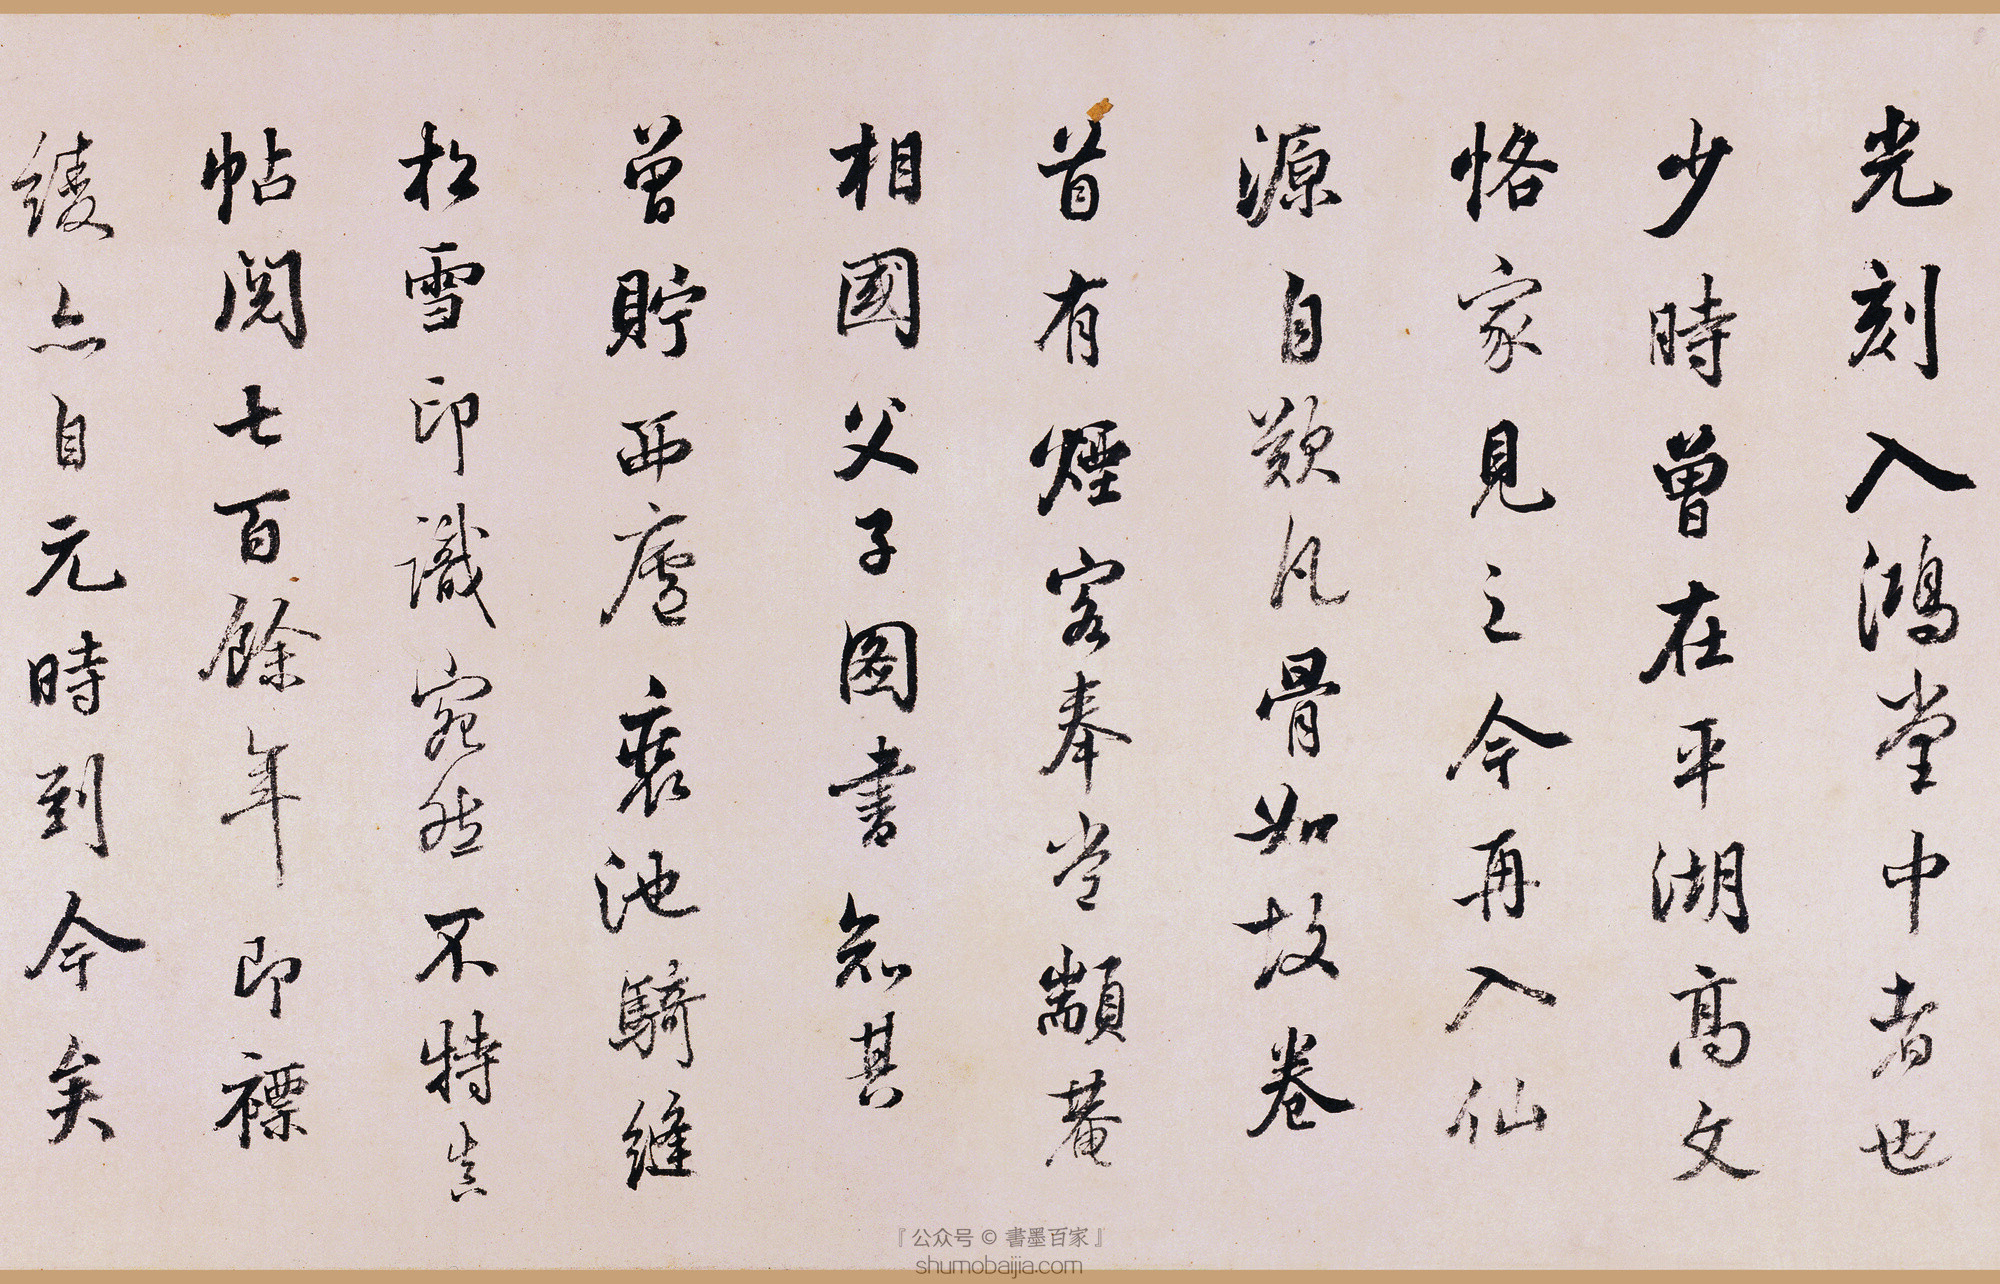 光刻入鴻堂中者也
少時曾在平湖高文
恪家見之今再入仙
源自歎凡骨如故卷
首有煙客奉常顓菴
相國父子圖書知其
曾貯西廬裘池騎縫
松雪印識宛然不特真
帖閱七百餘年即褾
綾亦自元時到今矣
『公众号 © 書墨百家』
shumobaijia.com